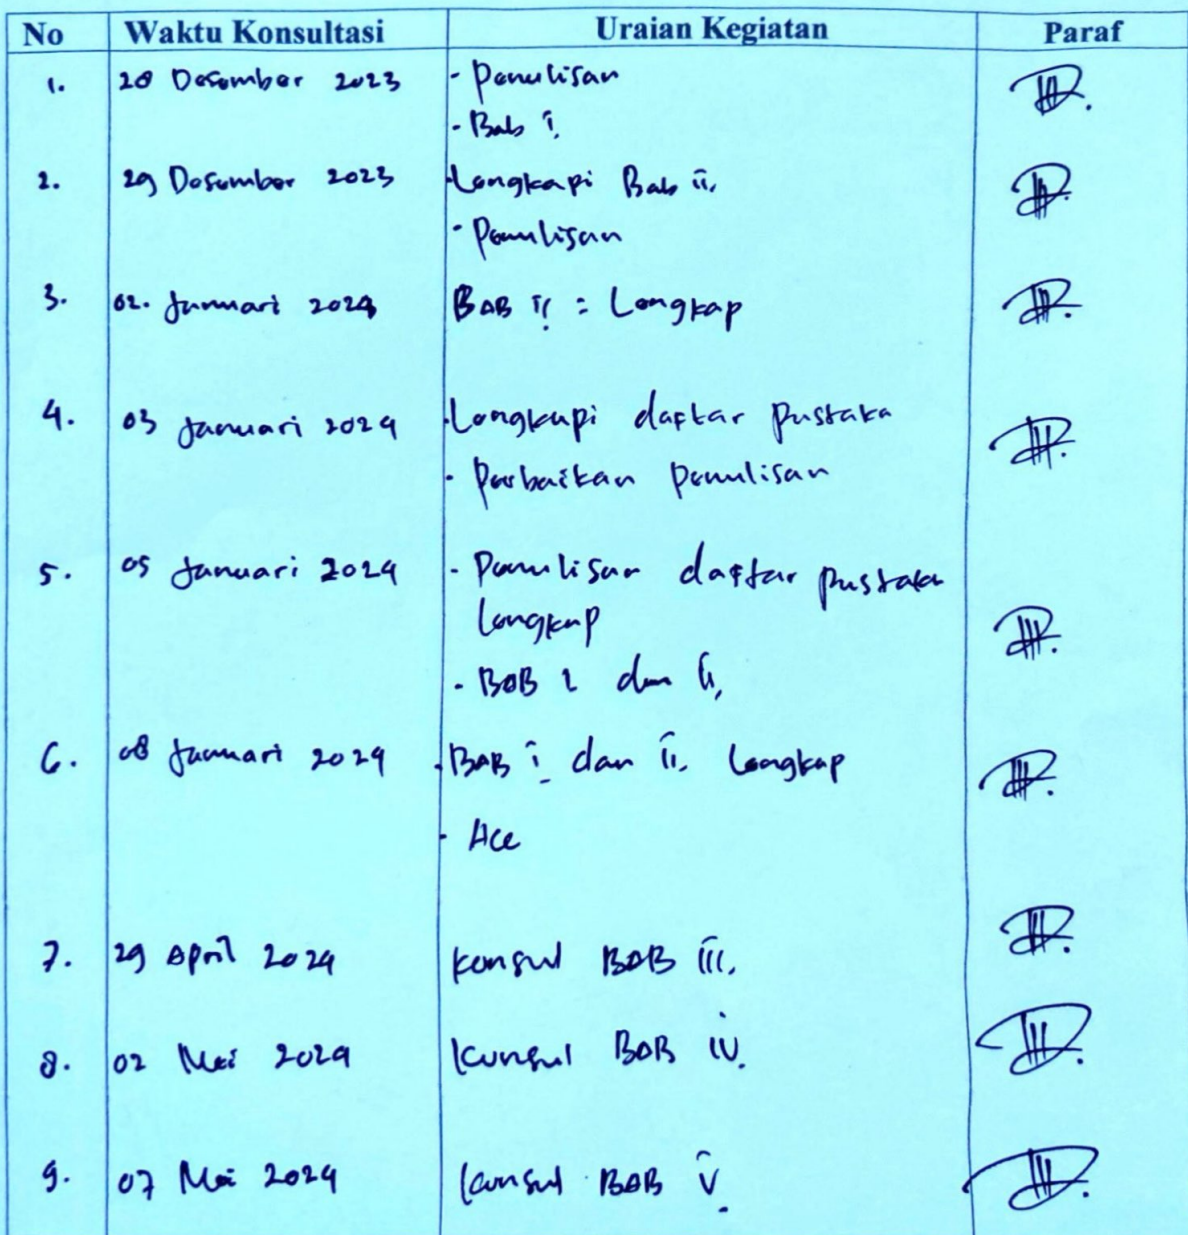 No Waktu Konsultasi Uraian Kegiatan Paraf
1. 28 Desember 2023 - Penulisan
- Bab I
2. 29 Desember 2023 - Lengkapi Bab II.
- Penulisan
3. 02. Januari 2024 BAB II : Lengkap
4. 03 Januari 2024 - Lengkapi daftar pustaka
- Perbaikan penulisan
5. 05 Januari 2024 - Penulisan daftar pustaka
Lengkap
- BAB I dan II,
6. 08 Januari 2024 - BAB I dan II. Lengkap
- Acc
7. 29 April 2024 Konsul BAB III.
8. 02 Mei 2024 Konsul BAB IV.
9. 07 Mei 2024 Konsul BAB V.